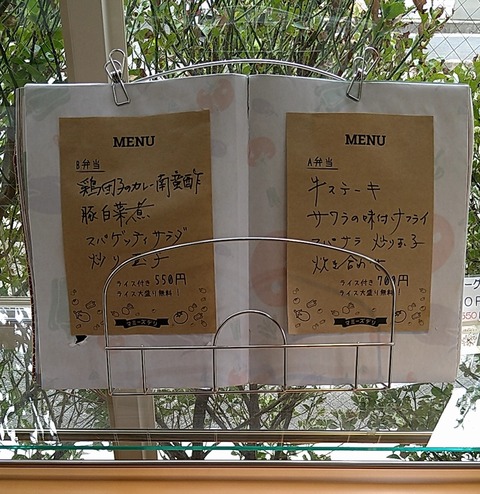 MENU
B弁当
鶏団子のカレー南蛮酢
豚白菜煮
スパゲッティサラダ
炒り玉子
ライス付き 550円
ライス大盛り無料!
マミーズデリ
MENU
A弁当
牛ステーキ
サワラの味付フライ
スパサラ 炒り玉子
炊き合わせ
ライス付き 700円
ライス大盛り無料!
マミーズデリ